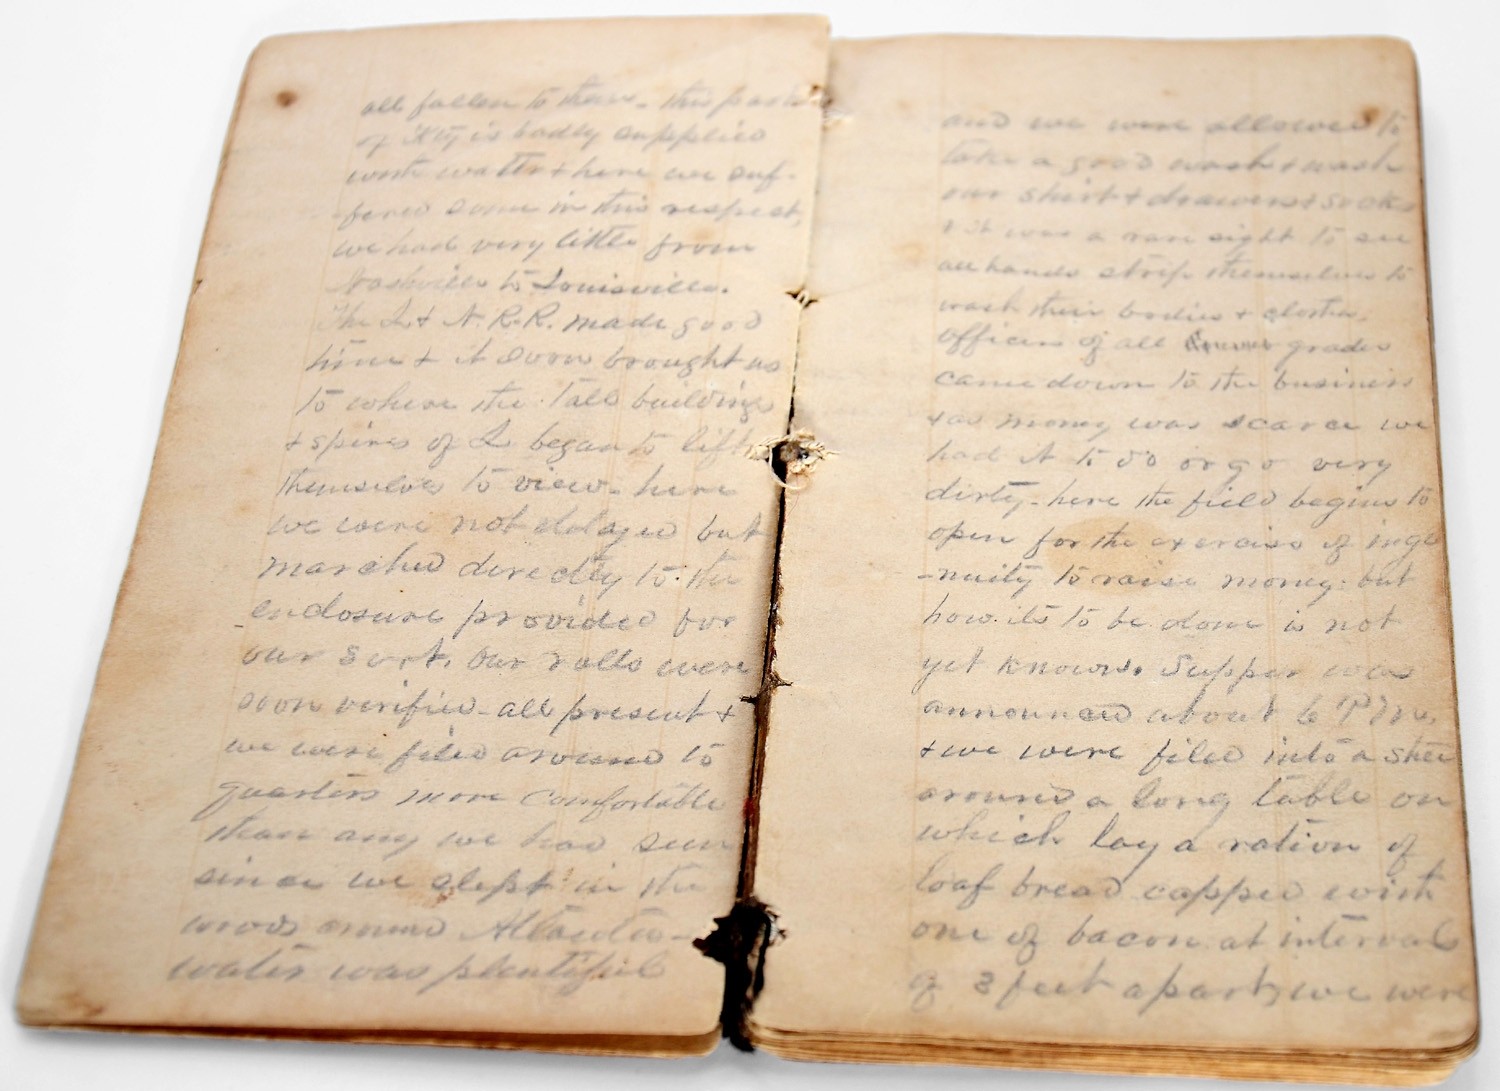 all fallen to them - this part
of Kty is badly supplied
with water + here we suf-
-fered some in this respect,
we had very little from
Nashville to Louisville.
The L + N. R.R. made good
time + it soon brought us
to where the tall buildings
+ spires of L began to lift
themselves to view - here
we were not delayed but
marched directly to the
enclosure provided for
our sort. Our rolls were
soon verified - all present +
we were filed around to
quarters more comfortable
than any we had seen
since we slept in the
woods around Atlanta -
water was plentiful
and we were allowed to
take a good wash + wash
our shirt + drawers + socks
+ it was a rare sight to see
all hands strip themselves to
wash their bodies + clothes.
officers of all grades
came down to the business
+ as money was scarce we
had it to do or go very
dirty - here the field begins to
open for the exercise of inge
-nuity to raise money. but
how its to be done is not
yet known. Supper was
announced about 6 P.M.,
+ we were filed into a shed
around a long table on
which lay a ration of
loaf bread capped with
one of bacon at interval
of 3 feet apart, we were